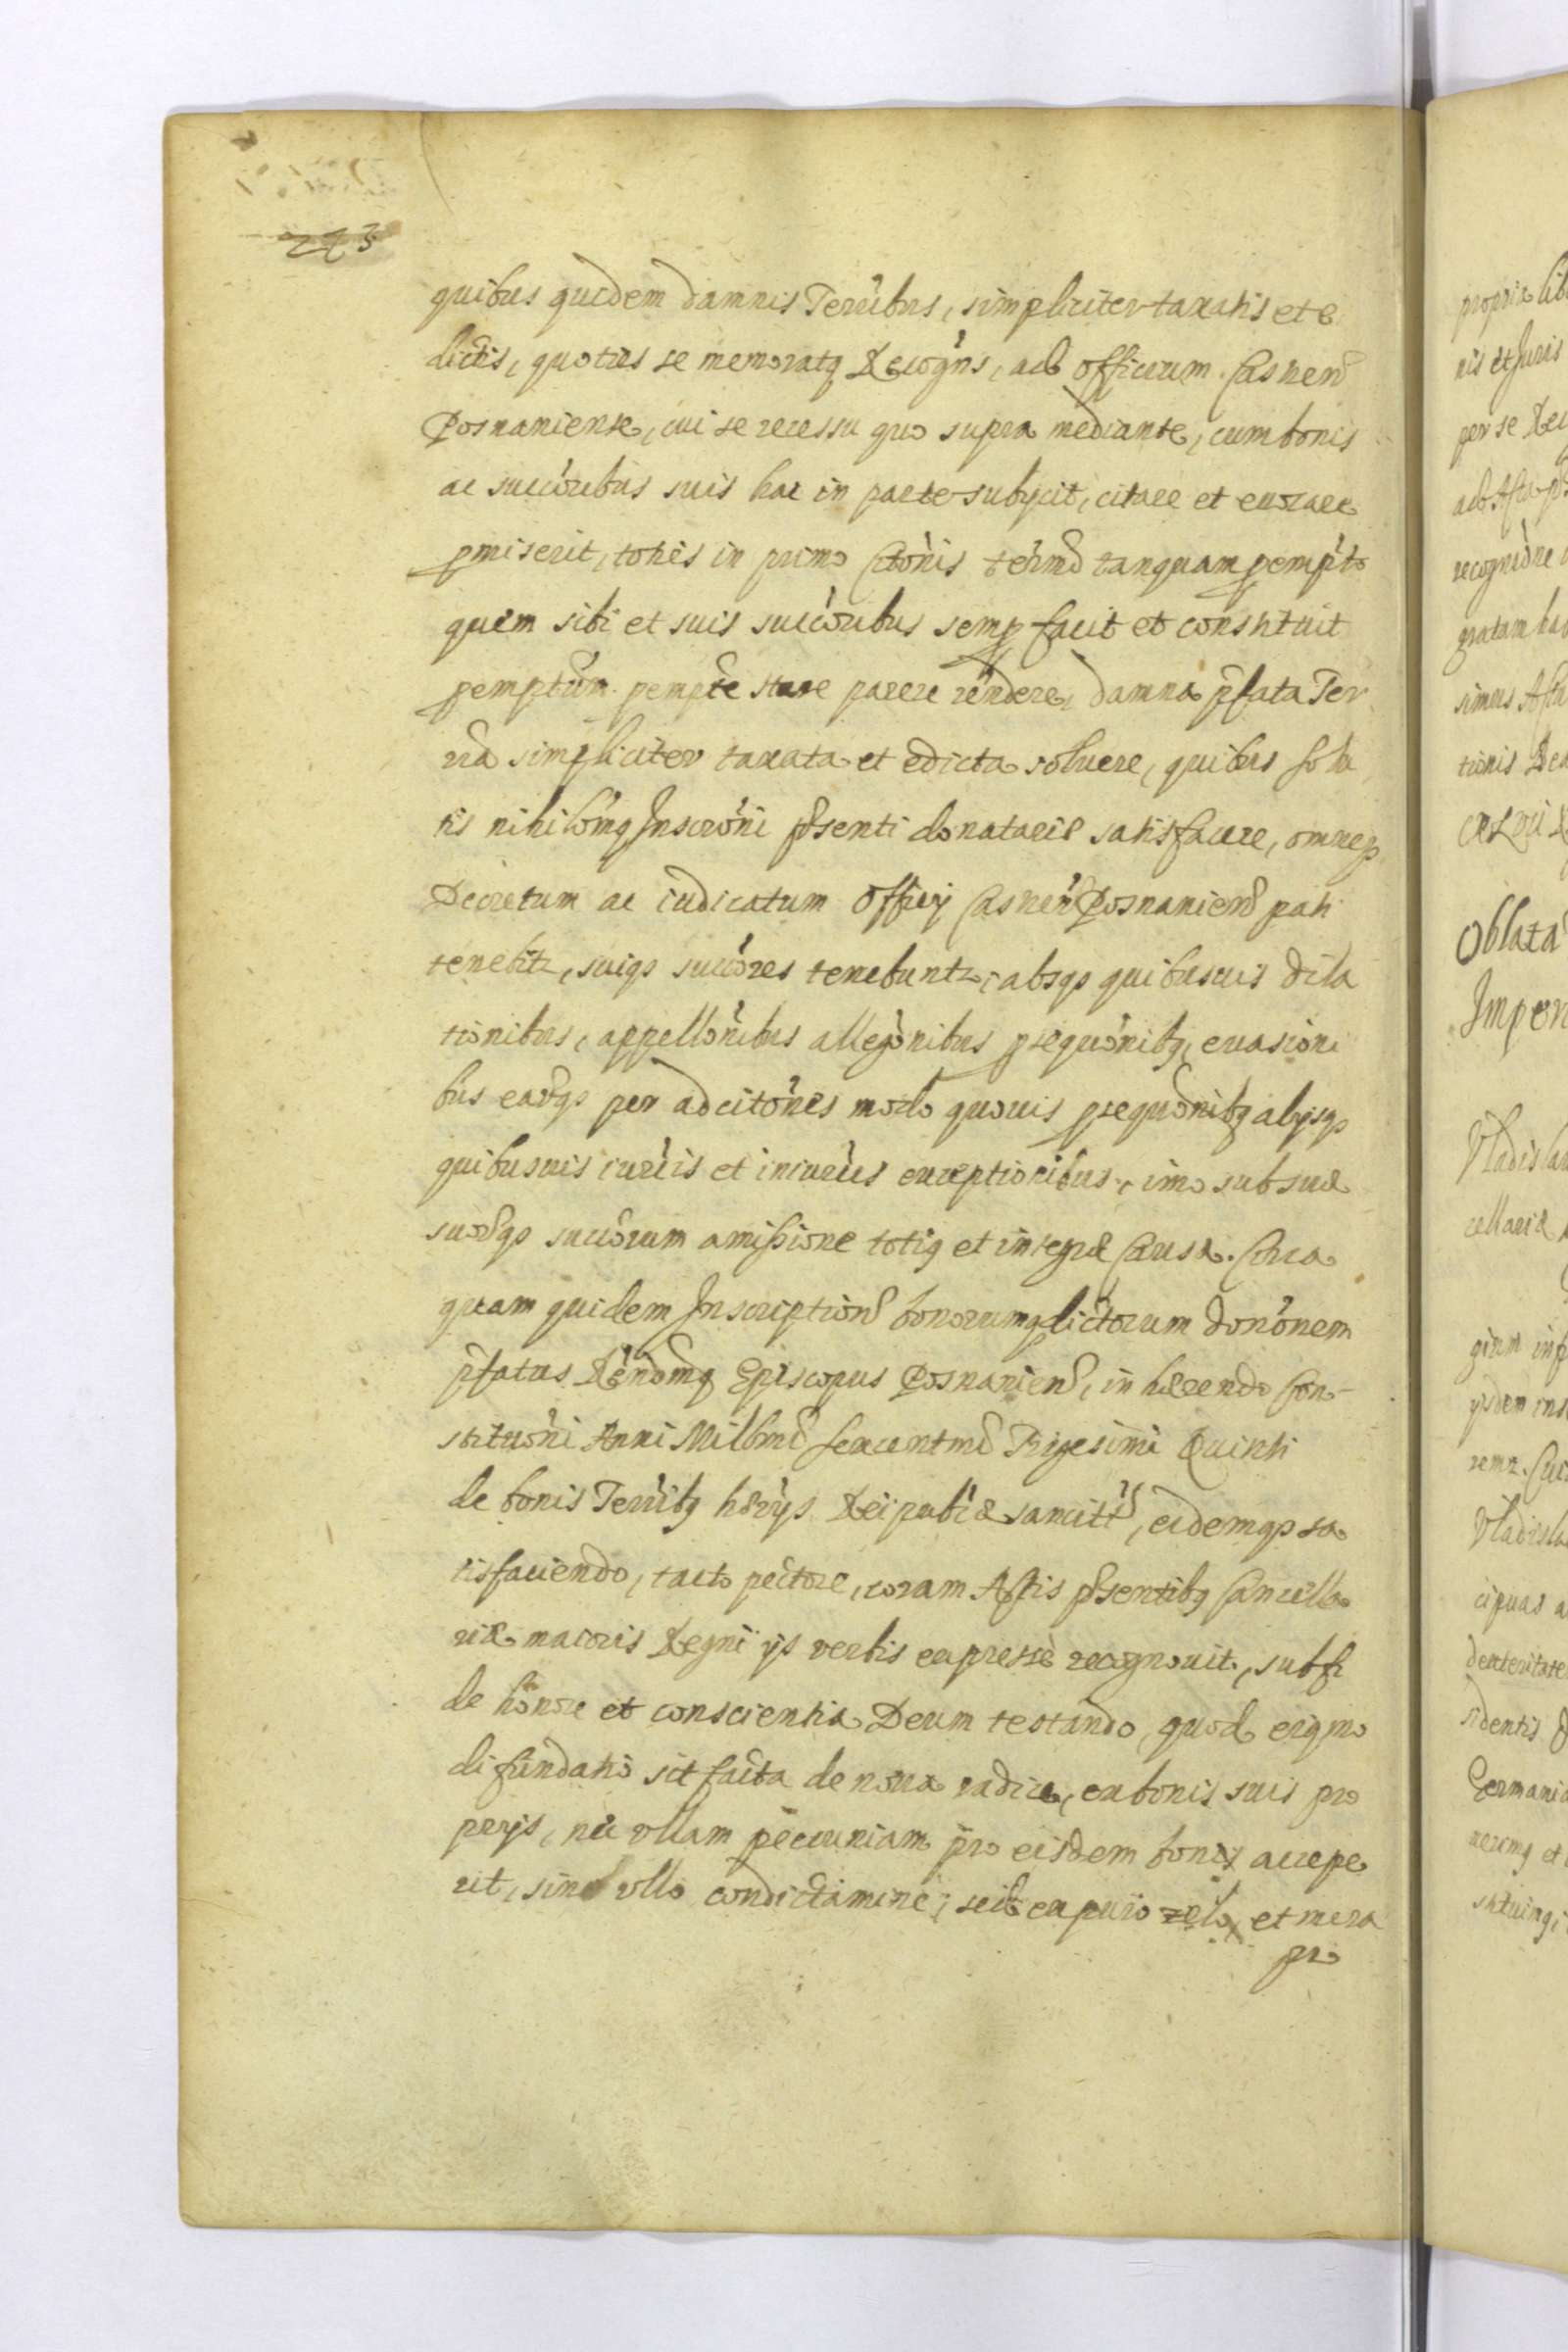 223
quibus quidem damnis Terribus, simpliciter taxatis et e
dictis, quoties se memoratq Recogns, ad officium Casnen
Posnaniense, cui se recessu quo supra mediante, cum bonis
ac succoribus suis hac in parte subycit, citare et euocare
pmiserit, toties in primo Ctonis termo tanquam pempto
quem sibi et suis succoribus semp facit et constituit
pemptum pempte stare parere rendere, damna pfata Ter
ria simpliciter taxata et edicta soluere, quibus solu
tis nihilomq Inscroni psenti donatariæ satisfacere, omneqз
Decretum ac iudicatum Officij Casnen Posnanien pati
tenebitr, suiqз succores tenebuntr, absqз quibusuis dila
tionibus, appellonibus allegonibus psequonibq, euasioni
bus earqз per adcitones modo quouis psequonibq alijsqз
quibusuis iuriis et iniuriis exceptionibus, imo sub sua
suorqз succorum amissione totiq et integræ Causæ. Circa
quam quidem Inscription bonorumq dictorum dononem
pfatus Rendmq Episcopus Posnanien, in hærendo Con-
stituoni Anni Millmi sexcentmi Trigesimi Quinti
de bonis Terribq hæryis Reipublicæ sancitt, eidemqз sa
tisfaciendo, tacto pectore, coram Actis psentibq Cancella
riæ maioris Regni ijs verbis expressè recognouit, sub fi
de honore et conscientia Deum testando, quod eiqmo
di fundatio sit facta de noua radice, ex bonis suis pro
prijs, nec vllam pecuniam pro eisdem bonis accepe
rit, sine vllo condictamine, sed ex puro zelo et mera
pr
propria lib
nis et Juris
per se Rec
ad Acta p
recognione
gratam hab
simus Acta
tionis Dec
Oblata
Imper
Vladislau
cellariæ
yisdem ins
Vladisla
cipuas a
dexteritate
sidentis
Germani